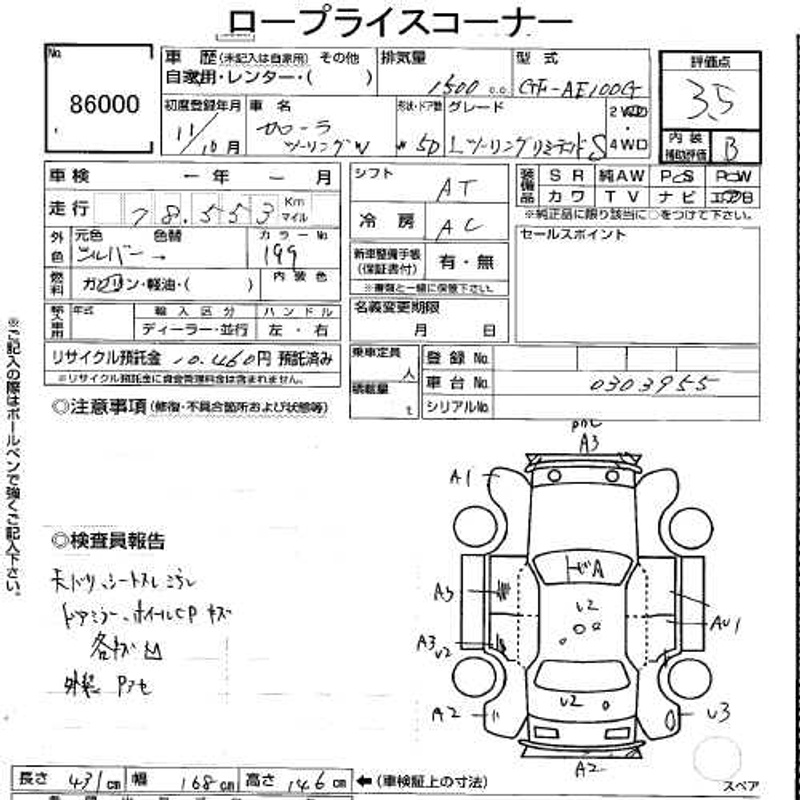 ロープライスコーナー
No. 86000
車歴 (未記入は自家用) その他
自家用・レンター・( )
排気量 1500 c.c.
型式 GF-AE100G
評価点 3.5
内装補助評価 B
初度登録年月 11/10月
車名 カローラ ツーリングW
形状・ドア数 W 5D
グレード Lツーリングリミテッド S
2WD ・ 4WD
車検 － 年 － 月
走行 78,553 Km マイル
外色 元色 シルバー → 色替 カラーNo. 199
燃料 ガソリン・軽油・( ) 内装色
輸入車用 年式 輸入区分 ディーラー・並行 ハンドル 左・右
リサイクル預託金 10,460円 預託済み
※リサイクル預託金に資金管理料金は含まれません。
シフト AT
冷房 AC
新車整備手帳 (保証書付) 有・無
※書類と一緒に保管下さい。
名義変更期限 月 日
乗車定員 人
積載量 t
装備品 SR 純AW PS PW
カワ TV ナビ エアB
※純正品に限り該当に○をつけて下さい。
セールスポイント
登録No.
車台No. 0303955
シリアルNo.
◎注意事項 (修復・不具合箇所および状態等)
※ご記入の際はボールペンで強くご記入下さい。
◎検査員報告
天ドリ、シートスレ
ドアミラー、ホイールCP キズ
各キズ凹
外装 Pアセ
A3
A1
A
A3
U2
AU1
A3
U2
U2
A2
U3
A2
スペア
長さ 431cm 幅 168cm 高さ 146cm ←(車検証上の寸法)